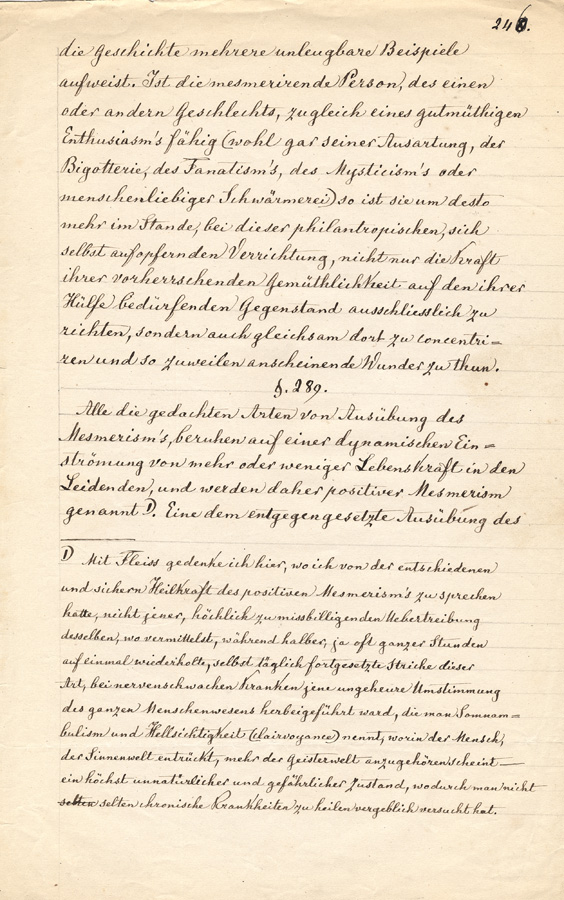 246.
die Geschichte mehrere unleugbare Beispiele
aufweist. Ist die mesmerirende Person, des einen
oder andern Geschlechts, zugleich eines gutmüthigen
Enthusiasm's fähig (wohl gar seiner Ausartung, der
Bigotterie, des Fanatism's, des Mysticism's oder
menschenliebiger Schwärmerei) so ist sie um desto
mehr im Stande, bei dieser philantropischen, sich
selbst aufopfernden Verrichtung, nicht nur die Kraft
ihrer vorherrschenden Gemüthlichkeit auf den ihrer
Hülfe bedürfenden Gegenstand ausschliesslich zu
richten, sondern auch gleichsam dort zu concentri=
ren und so zuweilen anscheinende Wunder zu thun.
§. 289.
Alle die gedachten Arten von Ausübung des
Mesmerism's, beruhen auf einer dynamischen Ein=
strömung von mehr oder weniger Lebenskraft in den
Leidenden, und werden daher positiver Mesmerism
genannt 1). Eine dem entgegengesetzte Ausübung des
1) Mit Fleiss gedenke ich hier, wo ich von der entschiedenen
und sichern Heilkraft des positiven Mesmerism's zu sprechen
hatte, nicht jener, höchlich zu missbilligenden Uebertreibung
desselben, wo vermittelst, während halber, ja oft ganzer Stunden
auf einmal wiederholte, selbst täglich fortgesetzte Striche dieser
Art, bei nervenschwachen Kranken jene ungeheure Umstimmung
des ganzen Menschenwesens herbeigeführt ward, die man Somnam=
bulism und Hellsichtigkeit (clairvoyance) nennt, worin der Mensch,
der Sinnenwelt entrückt, mehr der Geisterwelt anzugehören scheint —
ein höchst unnatürlicher und gefährlicher Zustand, wodurch man nicht
selten selten chronische Krankheiten zu heilen vergeblich versucht hat.